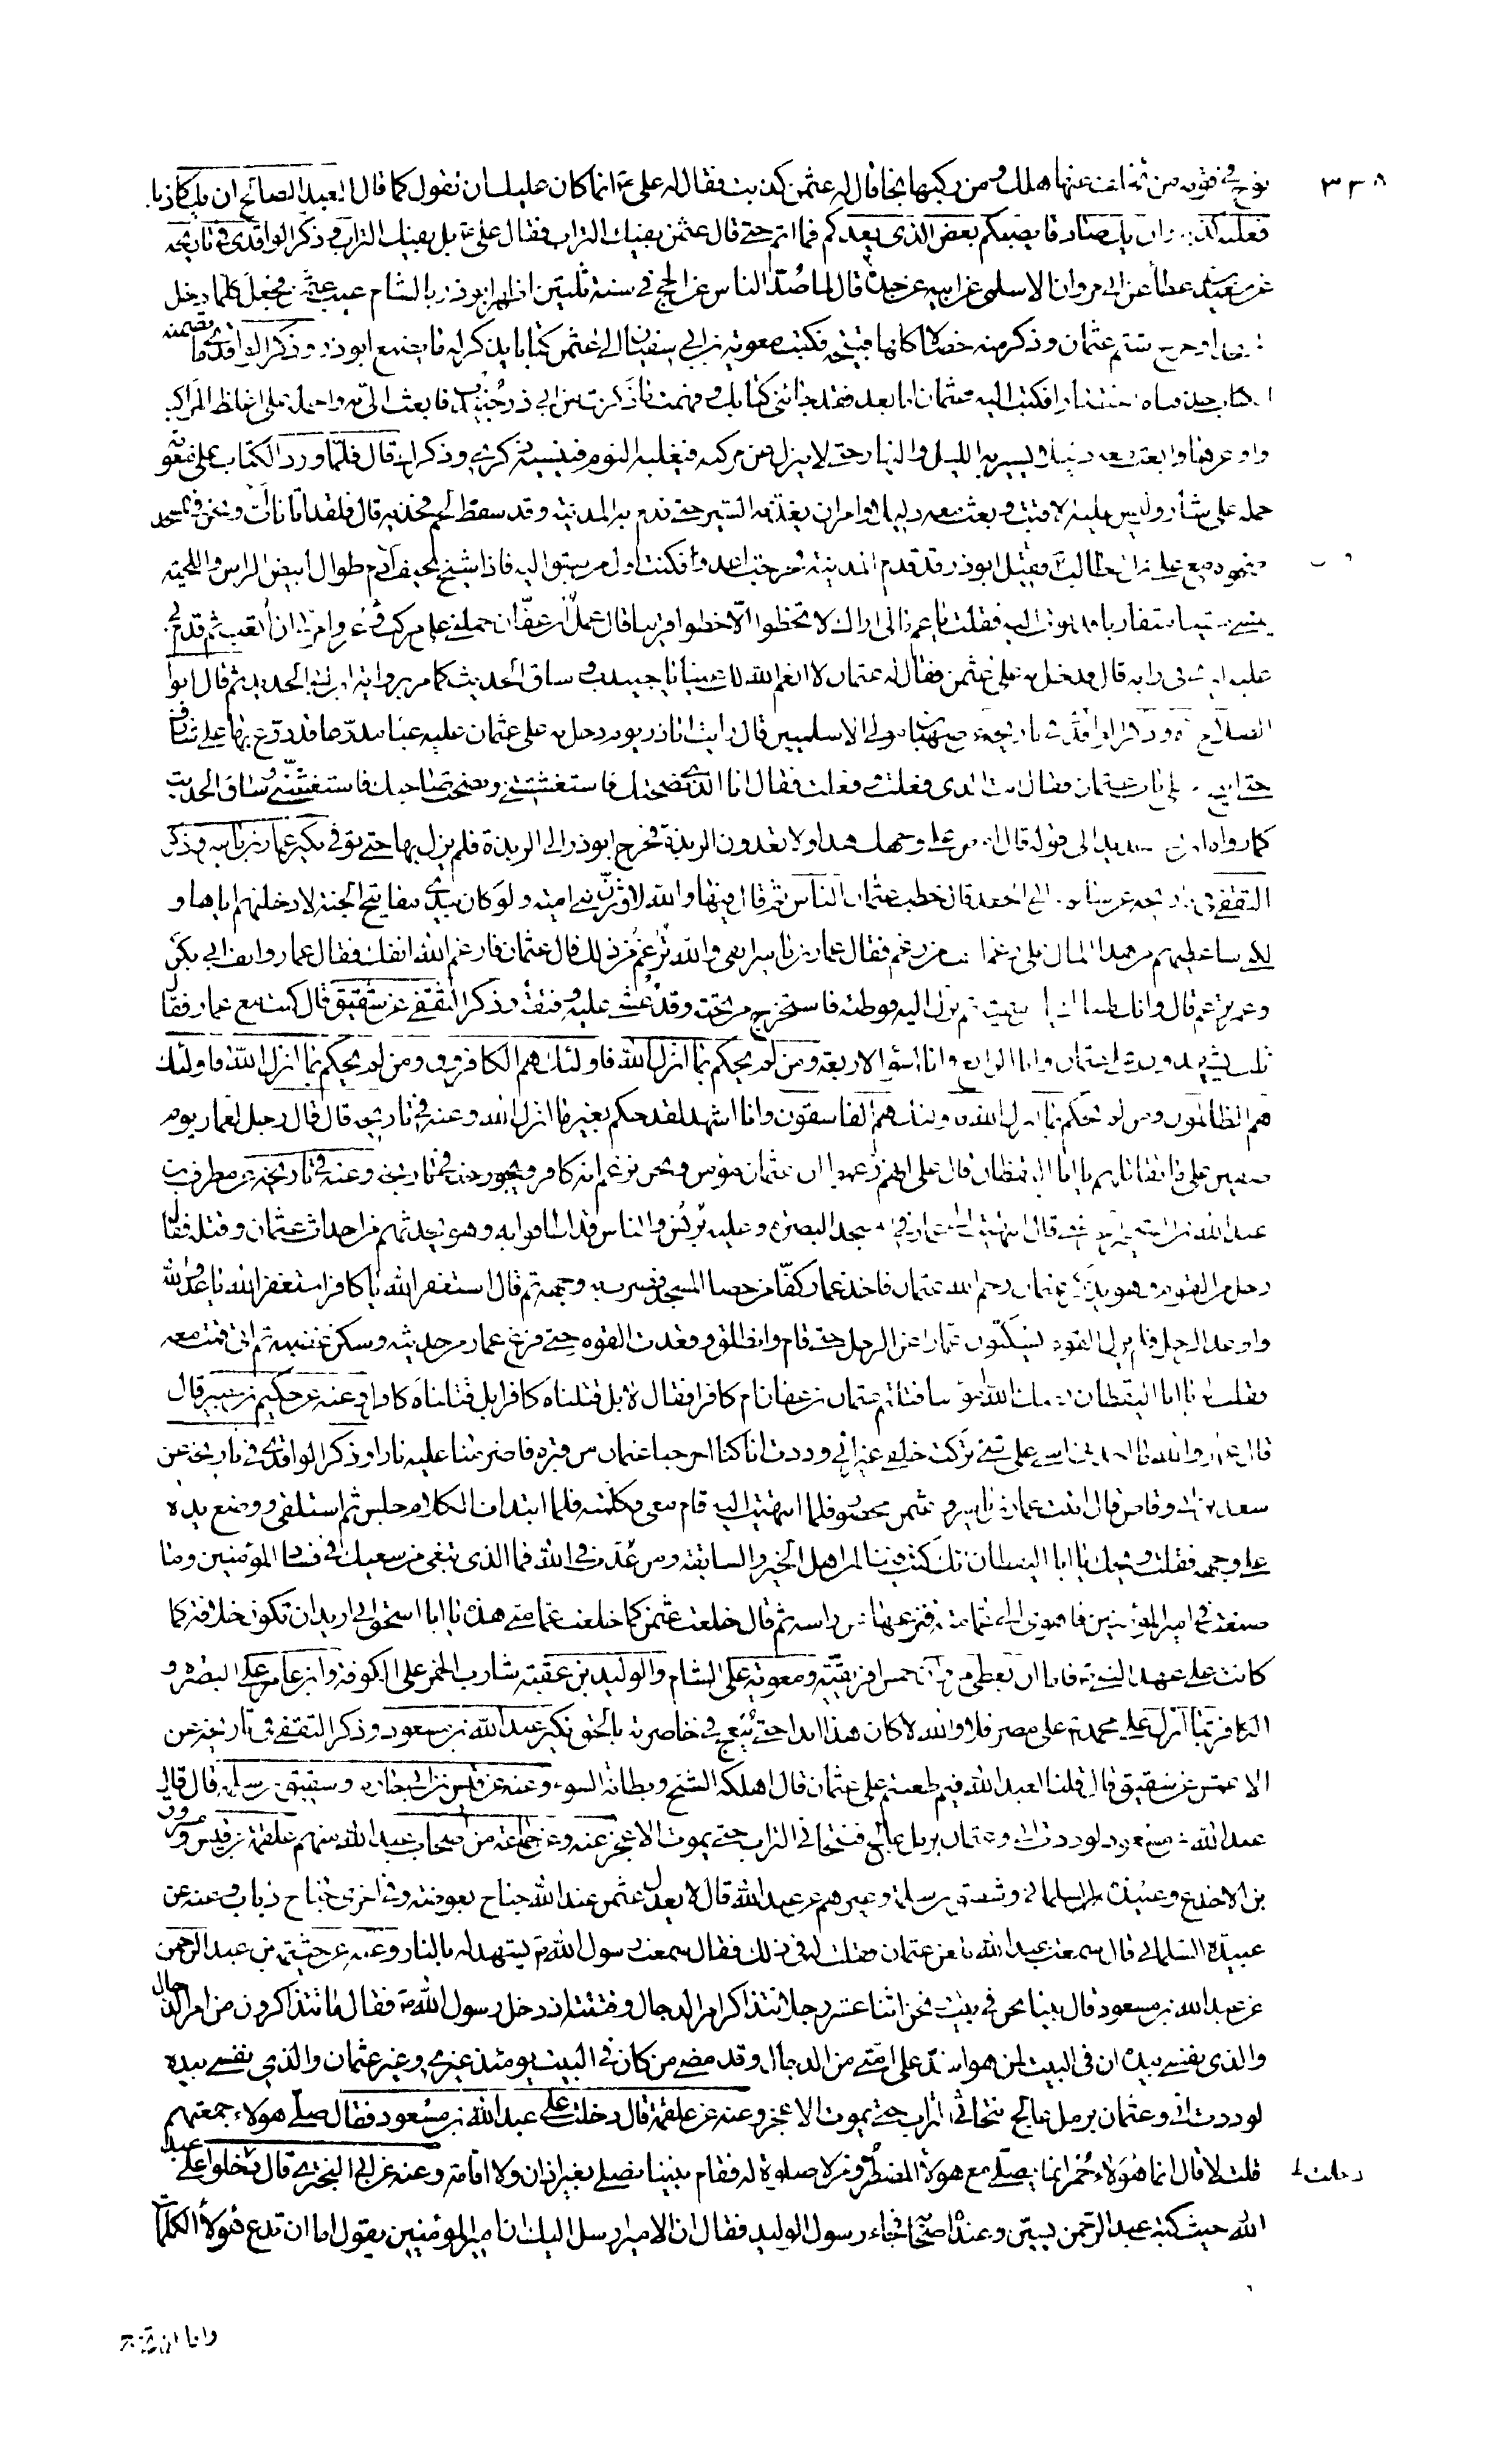 ٣٣٨
نوح في قومه من تخلف عنها هلك ومن ركبها نجا قال له عثمن كذبت فقال له علي ع انما كان عليك ان تقول كما قال العبد الصالح ان يك كاذبا
فعليه كذبه وان يك صادقا يصبكم بعض الذي يعدكم فما اتم حتى قال عثمن بفيك التراب فقال علي ع بل بفيك التراب وذكر الواقدي في تاريخه
عن سعيد بن عطا عن ابي مروان الاسلمي عن ابيه عن جده قال لما صدّ الناس عن الحج في سنة ثلثين اظهر ابوذر بالشام عيب عثمن فجعل كلما دخل
شتم عثمان وذكر منه خصالا كلها قبيحة فكتب معوية بن ابي سفيان الى عثمن كتابا يذكر له ما يصنع ابوذر وذكر الواقدي ما تضمنه
الكتاب فكتب اليه عثمان اما بعد فقد جائني كتابك وفهمت ما ذكرت من ابي ذر جنيدب فابعث اليّ به واحمله على اغلظ المراكب
واوعرها وابعث معه دليلا يسير به الليل والنهار حتى لا ينزل عن مركبه فيغلبه النوم فينسيه ذكري وذكرك قال فلما ورد الكتاب على معوية
حمله على شارف ليس عليه الا قتب وبعث معه دليلا وامر ان يغذّ به السير حتى قدم به المدينة وقد سقط لحم فخذيه قال فلقد اتانا آت ونحن في المسجد
ضحوة مع علي بن ابي طالب ع فقيل ابوذر قد قدم المدينة فخرجت اعدو فكنت اول من سبق اليه فاذا شيخ نحيف آدم طوال ابيض الراس واللحية
يمشي مشيا متقاربا فدنوت اليه فقلت يا عم مالي اراك لا تخطوا الا خطوا قريبا قال عمل ابن عفان حملني على مركب وعر وامر بي ان اتعب ثم قدم بي
عليه ليرى في رايه قال فدخل به على عثمن فقال له عثمان لا انعم الله لك عينا يا جنيدب وساق الحديث كما مر برواية ابن ابي الحديد ثم قال ابوا
الصلاح ره وذكر الواقدي في تاريخه عن صهبان مولى الاسلميين قال رايت اباذر يوم دخل به على عثمان عليه عبا مدرعا قد درع بها على شارف
حتى انيخ به على باب عثمان فقال انت الذي فعلت وفعلت فقال انا الذي نصحتك فاستغششتني ونصحت صاحبك فاستغشني وساق الحديث
كما رواه ابن ابي الحديد الى قوله قال امض على وجهك هذا ولا تعدون الربذة فخرج ابوذر الى الربذة فلم يزل بها حتى توفي نكير عمار بن ياسر وذكر
الثقفي في تاريخه عن سالم بن ابي الجعد قال خطب عثمان الناس ثم قال فيها والله لاوثرن بني امية ولو كان بيدي مفاتيح الجنة لادخلنهم اياها و
لكني ساعطيهم من هذا المال على رغم انف من رغم فقال عمار بن ياسر انفي والله ترغم من ذلك قال عثمان فارغم الله انفك فقال عمار وانف ابي بكر
وعمر ترغم قال وانك لهناك يا ابن سمية ثم نزل اليه فوطئه فاستخرج من تحته وقد غشي عليه وفتقه وذكر الثقفي عن شقيق قال كنت مع عمار فقال
ثلث يشهدون على عثمان وانا الرابع وانا اسوأ الاربعة ومن لم يحكم بما انزل الله فاولئك هم الكافرون ومن لم يحكم بما انزل الله فاولئك
هم الظالمون ومن لم يحكم بما انزل الله فاولئك هم الفاسقون وانا اشهد لقد حكم بغير ما انزل الله وعنه في تاريخه قال قال رجل لعمار يوم
صفين على ما تقاتلهم يا ابا اليقظان قال على انهم زعموا ان عثمان مؤمن ونحن نزعم انه كافر وعنه في تاريخه عن مطرف بن
عبد الله بن الشخير قال انتهيت الى عمار في مسجد البصرة وعليه برنس والناس قد اطافوا به وهو يحدثهم من احداث عثمان وقتله فقال
رجل من القوم وهو يذكر عثمان رحم الله عثمان فاخذ عمار كفا من حصا المسجد فضرب به وجهه ثم قال استغفر الله يا كافر استغفر الله يا عدو الله
واوعد الرجل فلم يزل القوم يسكنون عمارا عن الرجل حتى قام وانطلق وقعدت القوم حتى فرغ عمار من حديثه وسكن غضبه ثم اني قمت معه
فقلت له يا ابا اليقظان رحمك الله مؤمنا قتلتم عثمان بن عفان ام كافرا فقال لا بل قتلناه كافرا بل قتلناه كافرا وعنه عن حكيم بن جبير قال
قال عمار والله ما اخذني اسى على شيء تركته خلفي غير اني وددت انا كنا اخرجنا عثمان من قبره فاضرمنا عليه نارا وذكر الواقدي في تاريخه عن
سعد بن ابي وقاص قال اتيت عمار بن ياسر وعثمن محصور فلما انتهيت اليه قام معي فكلمته فلما ابتدات الكلام جلس ثم استلقى ووضع يده
على وجهه فقلت ويحك يا ابا اليقظان انك كنت فينا لمن اهل الخير والسابقة ومن عذب في الله فما الذي تبغي من سعيك في فساد المؤمنين وما
صنعت في امير المؤمنين فاهوى الى عمامته فنزعها عن راسه ثم قال خلعت عثمن كما خلعت عمامتي هذه يا ابا اسحق اني اريد ان تكون خلافة كما
كانت على عهد النبي ص فاما ان يعطي مروان خمس افريقية ومعوية على الشام والوليد بن عقبة شارب الخمر على الكوفة وابن عامر على البصرة و
الكافر بما انزل على محمد ص على مصر فلا والله لا كان هذا ابدا حتى يبعج في خاصرته بالحق نكير عبد الله بن مسعود وذكر الثقفي في تاريخه عن
الاعمش عن شقيق قال قلنا لعبد الله فيم طعنتم على عثمان قال اهلكه الشح وبطانة السوء وعنه عن قيس بن ابي حازم وشقيق بن سلمة قال قال
عبد الله بن مسعود لوددت اني وعثمان برمل عالج فنتحاثى التراب حتى يموت الاعجز عنه وعن جماعة من اصحاب عبد الله منهم علقمة بن قيس ومسروق
بن الاجدع وعبيدة السلماني وشقيق بن سلمة وغيرهم عن عبد الله قال لا يعدل عثمن عند الله جناح بعوضة وفي اخرى جناح ذباب وعنه عن
عبيدة السلماني قال سمعت عبد الله يلعن عثمان فقلت له في ذلك فقال سمعت رسول الله ص يشهد له بالنار وعنه عن خيثمة بن عبد الرحمن
عن عبد الله بن مسعود قال بينا نحن في بيت نحن اثنا عشر رجلا نتذاكر امر الدجال وفتنته اذ دخل رسول الله ص فقال ما تتذاكرون من امر الدجال
والذي نفسي بيده ان في البيت لمن هو اشد على امتي من الدجال وقد مضى من كان في البيت يومئذ غيري وغير عثمان والذي نفسي بيده
لوددت اني وعثمان برمل عالج نتحاثى التراب حتى يموت الاعجز وعنه عن علقمة قال دخلت على عبد الله بن مسعود فقال صلى هولاء جمعتهم
قلت لا قال انما هؤلاء حمر انما يصلي مع هولاء المضطر ومن لا صلوة له فقام بيننا فصلى بغير اذان ولا اقامة وعنه عن ابي البختري قال دخلوا على عبد
دخلت ظ
الله حيث كتب عبد الرحمن يسير وعنده اصحابه فجاء رسول الوليد فقال ان الامير ارسل اليك ان امير المؤمنين يقول اما ان تدع هؤلاء الكلمات
واما ان تخرج